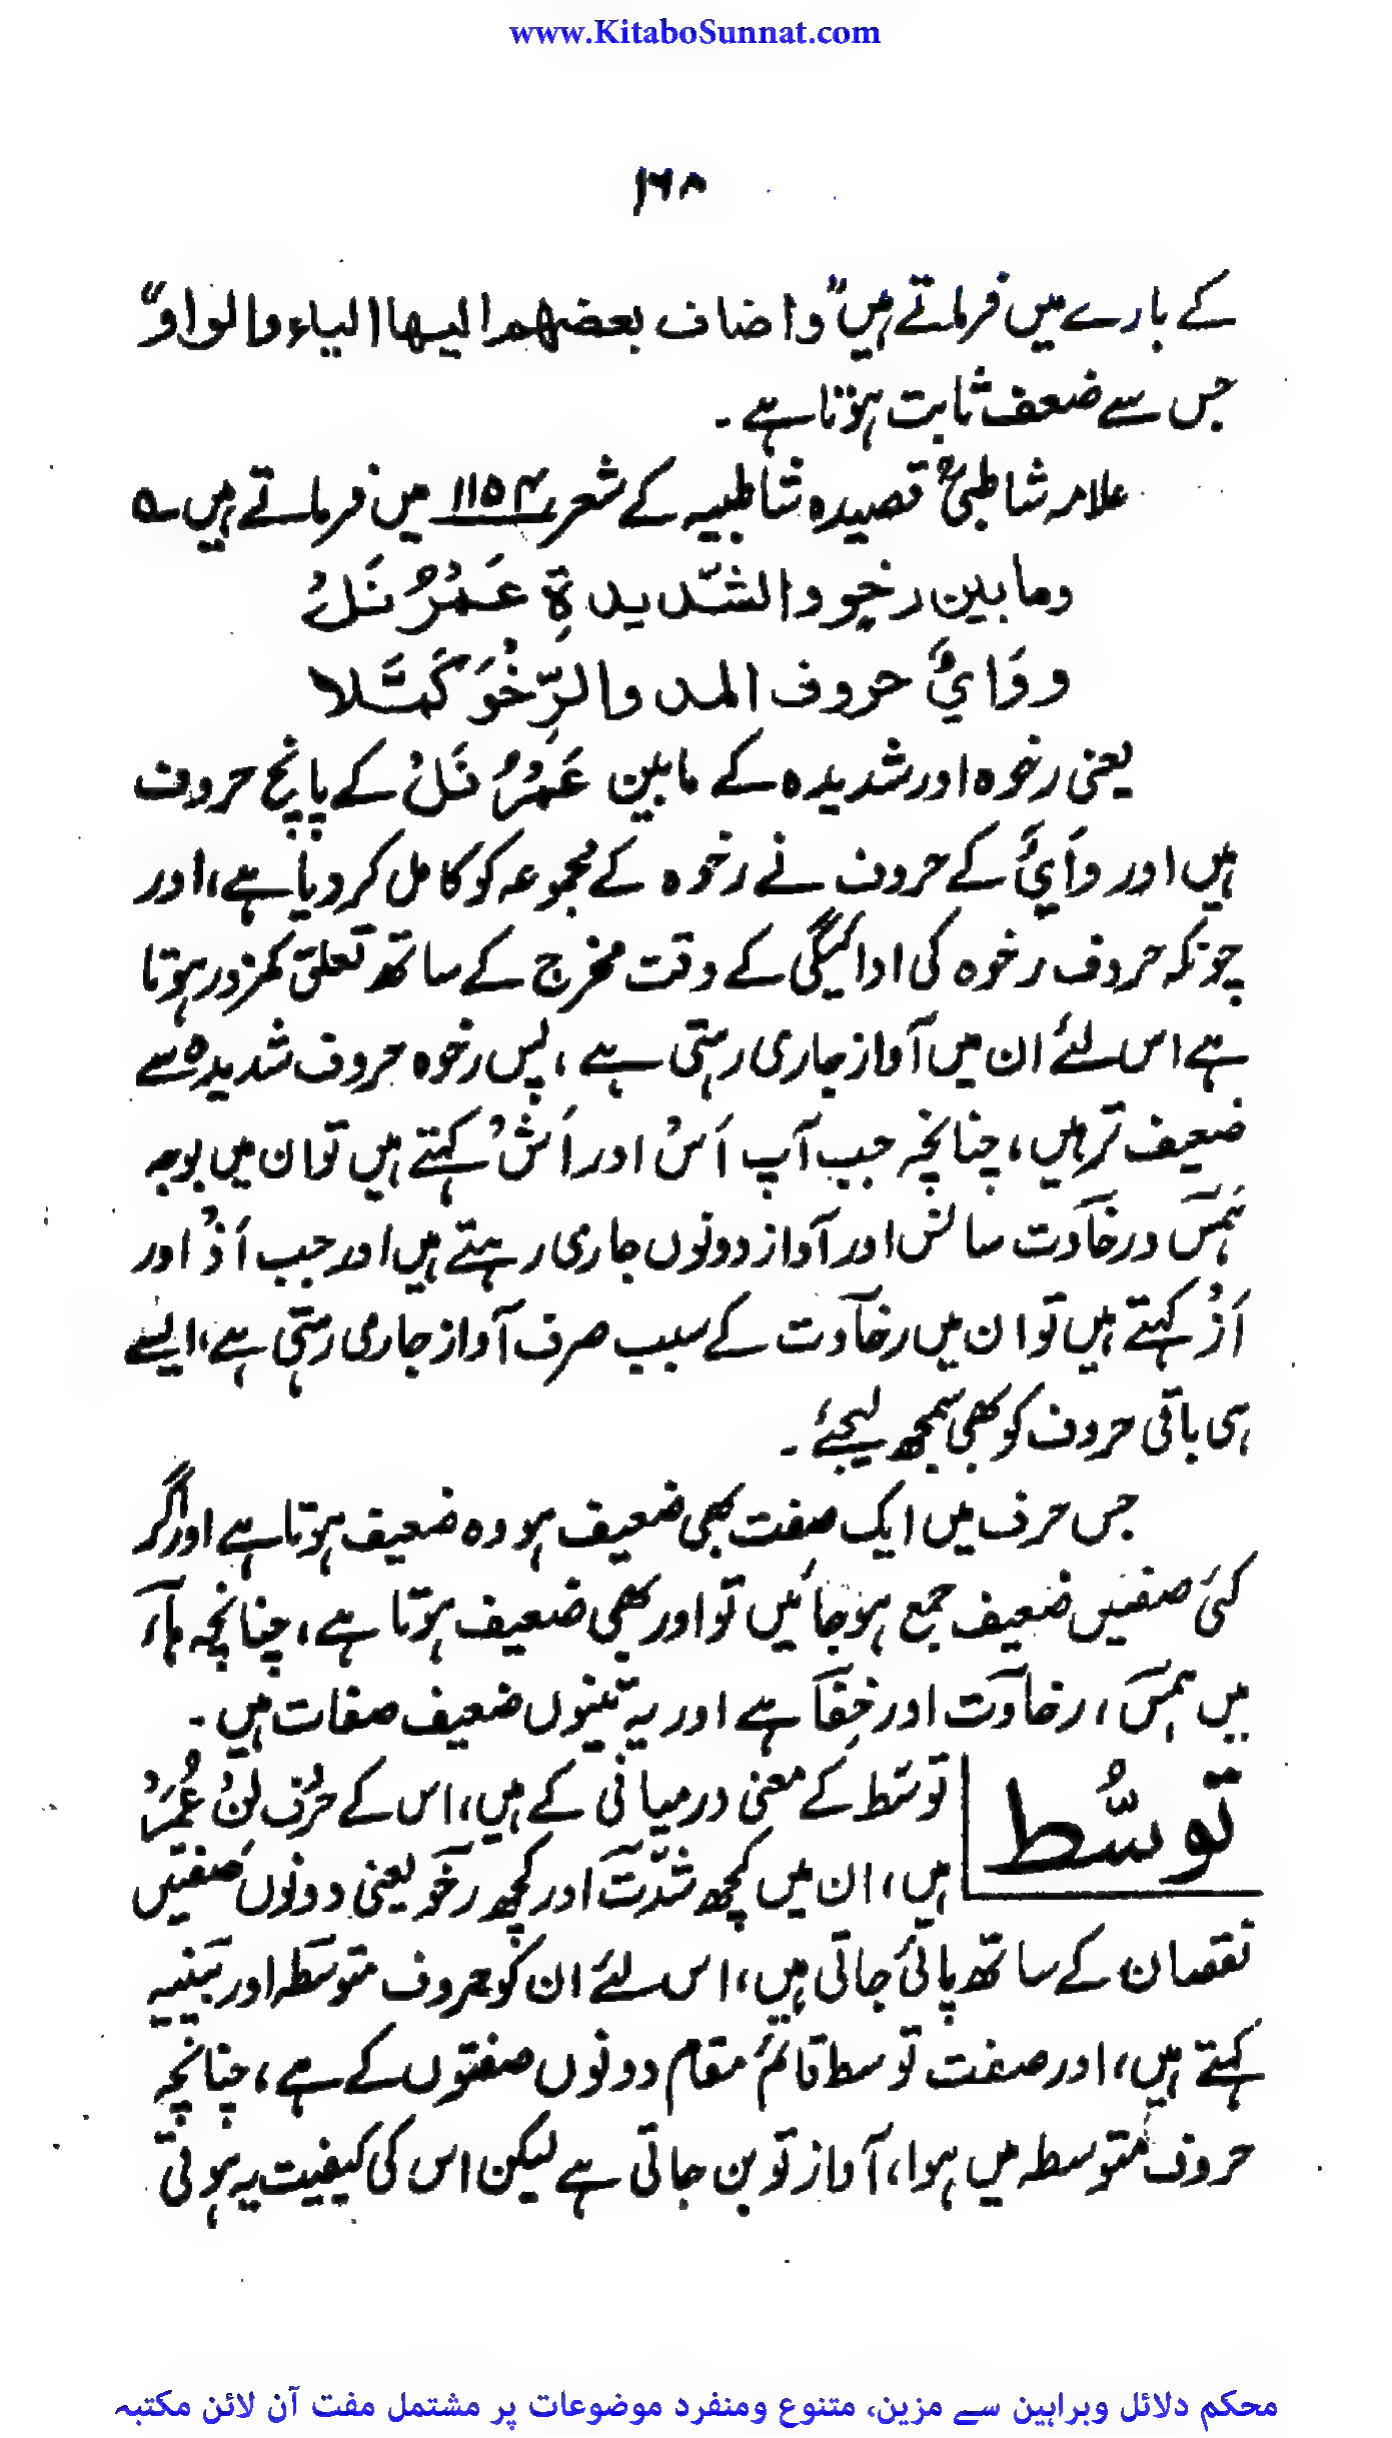 www.KitaboSunnat.com
۱۶۸
کے بارے میں فرماتے ہیں "واضاف بعضهم اليها الياء والواو"
جس سے ضعف ثابت ہوتا ہے ۔
علامہ شاطبیؒ قصیدہ شاطبیہ کے شعر ۱۱۵۴ میں فرماتے ہیں ے
وما بين رخو والشّديدةِ عَمْرُ نَلْ
ووَايٌ حروف المد والرِّخْوَ كَمَّلا
یعنی رخوہ اور شدیدہ کے مابین عَمْرُ نَلْ کے پانچ حروف
ہیں اور وَايٌ کے حروف نے رخوہ کے مجموعہ کو کامل کر دیا ہے، اور
چونکہ حروف رخوہ کی ادائیگی کے وقت مخرج کے ساتھ تعلق کمزور ہوتا
ہے اس لئے ان میں آواز جاری رہتی ہے ، پس رخوہ حروف شدیدہ سے
ضعیف تر ہیں ، چنانچہ جب آپ اَسْ اور اَشْ کہتے ہیں تو ان میں بوجہ
ہَمس ورخاوت سانس اور آواز دونوں جاری رہتے ہیں اور جب اَذْ اور
اَزْ کہتے ہیں تو ان میں رخاوت کے سبب صرف آواز جاری رہتی ہے، ایسے
ہی باقی حروف کو بھی سمجھ لیجئے ۔
جس حرف میں ایک صفت بھی ضعیف ہو وہ ضعیف ہوتا ہے اور اگر
کئی صفتیں ضعیف جمع ہو جائیں تو اور بھی ضعیف ہوتا ہے ، چنانچہ ہاء
میں ہمس ، رخاوت اور خِفَا ہے اور یہ تینوں ضعیف صفات ہیں ۔
توسُّط
توسّط کے معنی درمیانی کے ہیں، اس کے حرف لِنْ عُمَرْ
ہیں، ان میں کچھ شدّت اور کچھ رخو یعنی دونوں صفتیں
نقصان کے ساتھ پائی جاتی ہیں، اس لئے ان کو حروف متوسّطہ اور بینیہ
کہتے ہیں، اور صفت توسط قائم مقام دونوں صفتوں کے ہے ، چنانچہ
حروف متوسطہ میں ہوا، آواز تو بن جاتی ہے لیکن اس کی کیفیت یہ ہوتی
محکم دلائل وبراہین سے مزین، متنوع ومنفرد موضوعات پر مشتمل مفت آن لائن مکتبہ